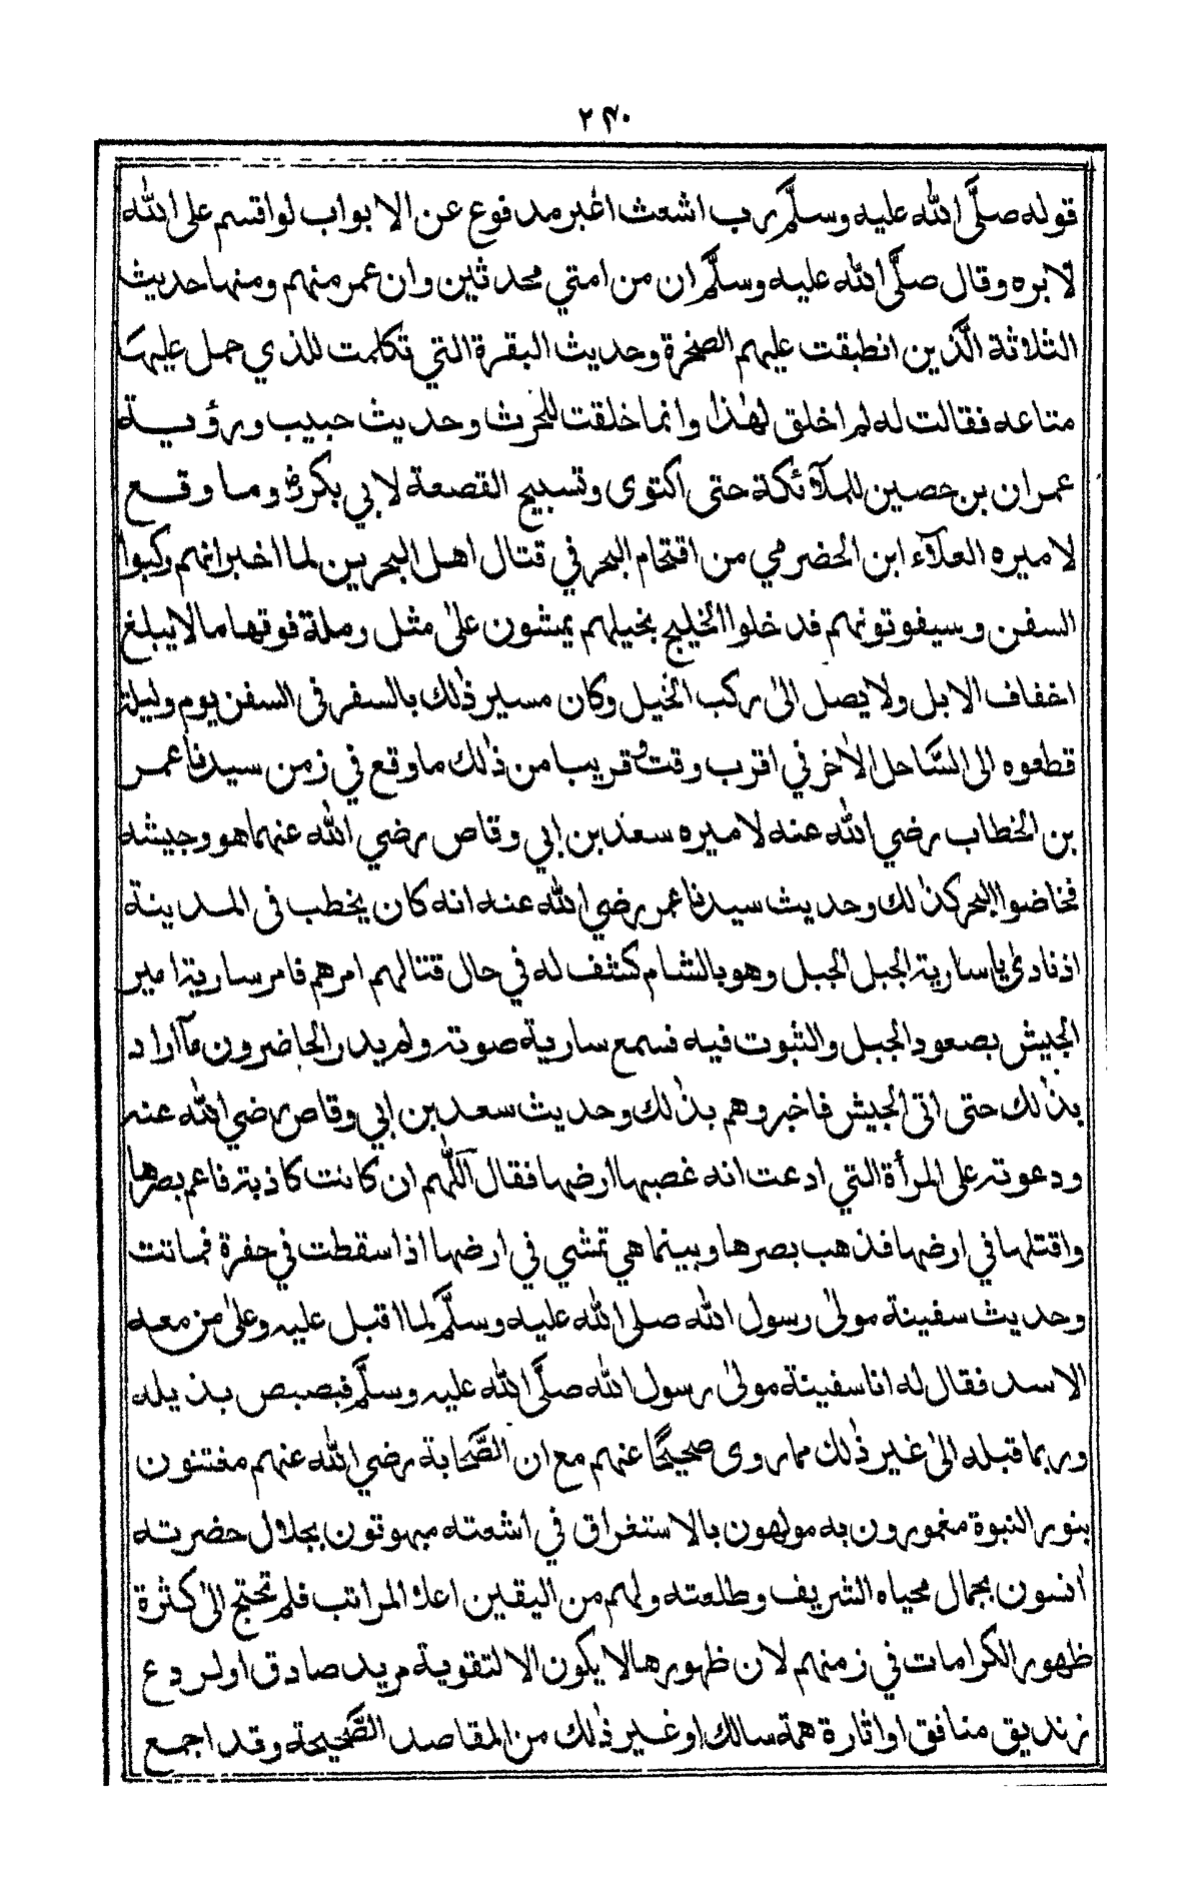 ٢٤٠
قوله صلَّى الله عليه وسلَّم رب اشعث اغبر مدفوع عن الابواب لو اقسم على الله
لابره وقال صلَّى الله عليه وسلَّم ان من امتي محدثين وان عمر منهم ومنها حديث
الثلاثة الَّذين انطبقت عليهم الصخرة وحديث البقرة التي تكلمت للذي حمل عليها
متاعه فقالت له لم اخلق لهٰذا وانما خلقت للحرث وحديث حبيب ورؤية
عمران بن حصين للملآئكة حتى اكتوى وتسبيح القصعة لابي بكرؓ وما وقع
لاميره العلآء ابن الحضرمي من اقتحام البحر في قتال اهل البحرين لما اخبر انهم ركبوا
السفن وسيفوتونهم فدخلوا الخليج بخيلهم يمشون علىٰ مثل رملة فوقها ما لا يبلغ
اخفاف الابل ولا يصل الىٰ ركب الخيل وكان مسير ذٰلك بالسفر فى السفن يوم وليلة
قطعوه الى السَّاحل الاٰخر في اقرب وقت وقريبا من ذٰلك ما وقع في زمن سيدنا عمر
بن الخطاب رضي الله عنه لاميره سعد بن ابي وقاص رضي الله عنهما هو وجيشه
فخاضوا البحر كذٰلك وحديث سيدنا عمر رضي الله عنه انه كان يخطب فى المدينة
اذ نادىٰ يا سارية الجبل الجبل وهو بالشام كشف له في حال قتالهم امرهم فامر سارية امير
الجيش بصعود الجبل والثبوت فيه فسمع سارية صوته ولم يدر الحاضرون مآ اراد
بذٰلك حتى اتى الجيش فاخبروهم بذٰلك وحديث سعد بن ابي وقاص رضي الله عنه
ودعوته على المرأة التي ادعت انه غصبها ارضها فقال آللّٰهم ان كانت كاذبة فاعم بصرها
واقتلها في ارضها فذهب بصرها وبينما هي تمشي في ارضها اذا سقطت في حفرة فماتت
وحديث سفينة مولىٰ رسول الله صلى الله عليه وسلَّم لما اقبل عليه وعلىٰ من معه
الاسد فقال له انا سفينة مولىٰ رسول الله صلَّى الله عليه وسلَّم فبصبص بذيله
وربما قبله الىٰ غير ذٰلك مما روى صحيحًا عنهم مع ان الصَّحابة رضي الله عنهم مفتنون
بنور النبوة مغمورون به مولهون بالاستغراق في اشعته مبهوتون بجلال حضرته
اٰنسون بجمال محياه الشريف وطلعته ولهم من اليقين اعلا المراتب فلم تحتج الىٰ كثرة
ظهور الكرامات في زمنهم لان ظهورها لا يكون الا لتقوية مريد صادق او لردع
زنديق منافق او اثارة همة سالك او غير ذٰلك من المقاصد الصَّحيحة وقد اجمع